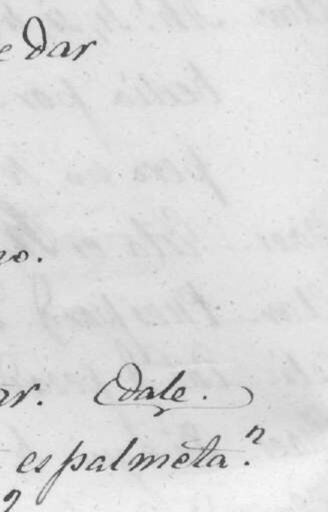 e dar
no.
ar. Edale.
espalmeta.n